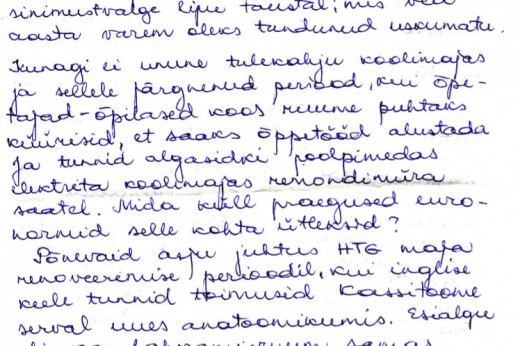 sinimustvalge lipu taustal, mis veel
aasta varem oleks tundunud uskumatu.
Kunagi ei unune tulekahju koolimajas
ja sellele järgnenud periood, kui õpe-
tajad-õpilased koos ruume puhtaks
küürisid, et saaks õppetööd alustada
ja tunnid algasidki poolpimedas
elektrita koolimajas remondimüra
saatel. Mida küll praegused euro-
normid selle kohta ütleksid?
Põnevaid asju juhtus HTG maja
renoveerimise perioodil, kui inglise
keele tunnid toimusid Kassitoome
serval uues anatoomikumis. Esialgu
samas